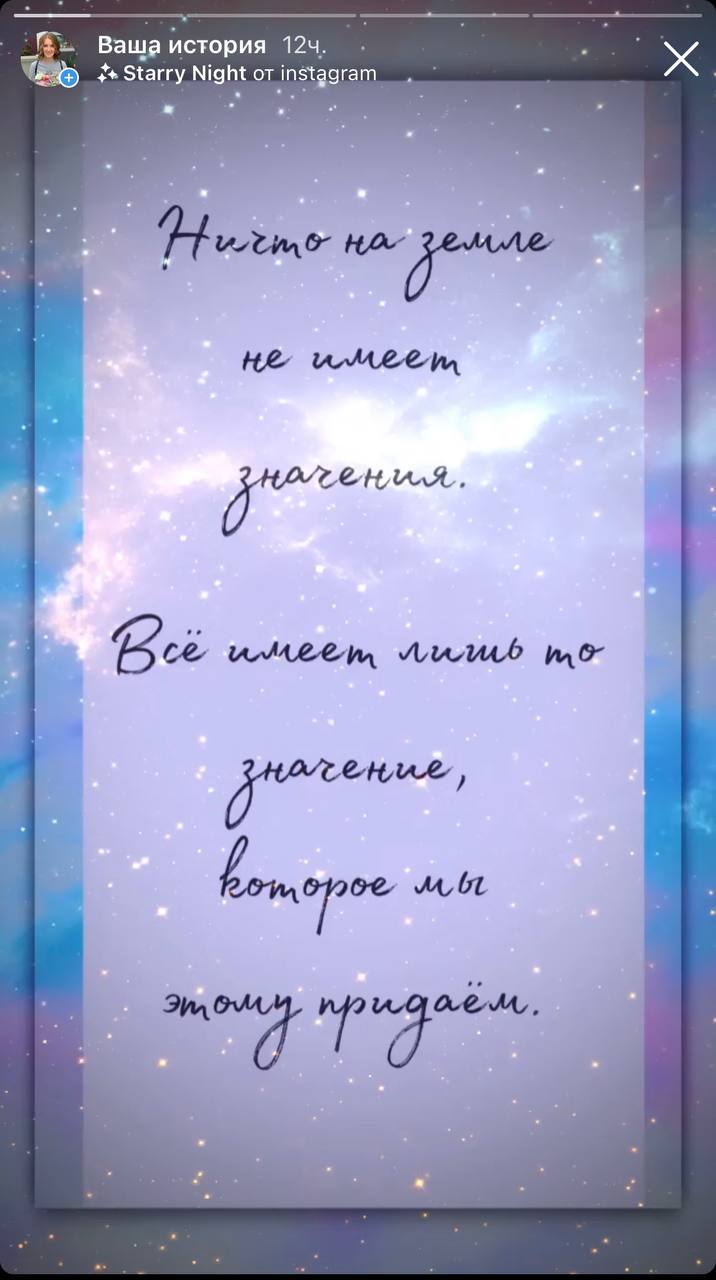 Ваша история 12ч.
Starry Night от instagram
Ничто на земле
не имеет
значения.
Всё имеет лишь то
значение,
которое мы
этому придаём.